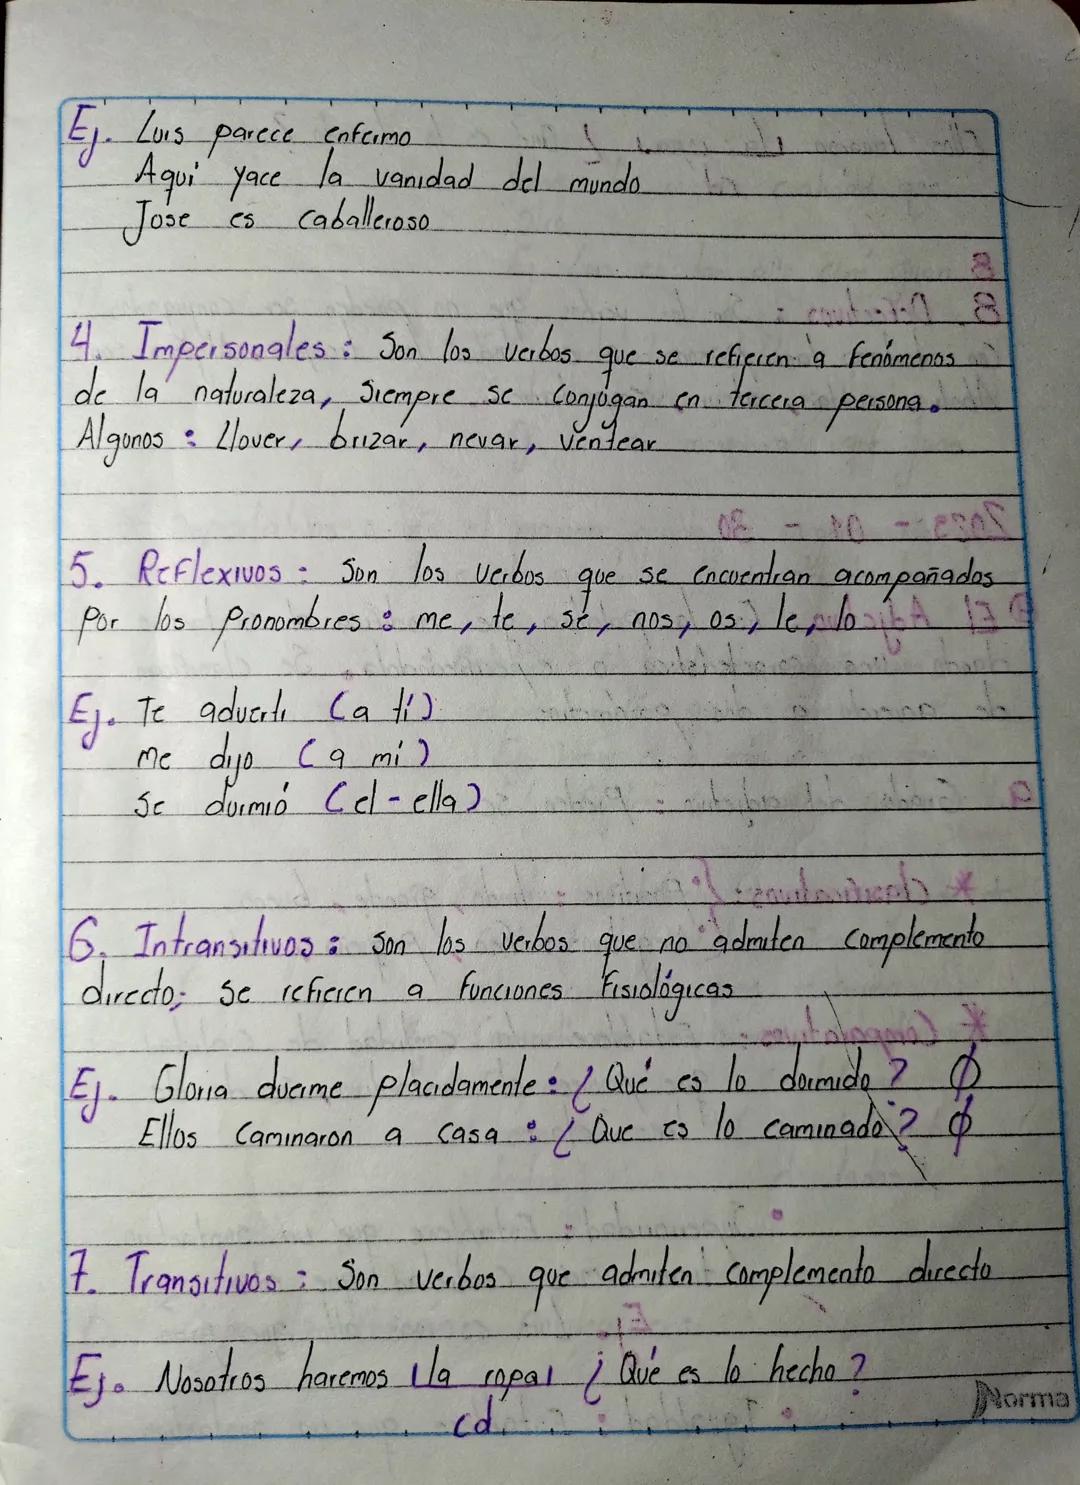 Ej. Luis parece enfermo
Aqui yace la vanidad del mundo
Jose es caballeroso
4. Impersonales: Son los verbos que se refieren a fenómenos
de la naturaleza, siempre se conjugan en tercera persona.
Algunos: Llover, brizar, nevar, ventear
5. Reflexivos: Son los verbos que se encuentran acompañados
por los pronombres: me, te, se, nos, os, le, lo
Ej. Te adverti (a tí)
Me dijo (a mí)
Se durmió (el-ella)
6. Intransitivos: son los verbos que no admiten complemento
directo; se refieren a funciones fisiológicas
Ej. Gloria duerme placidamente: ¿Qué es lo dormido? Ø
Ellos caminaron a casa: ¿Que es lo caminado? Ø
7. Transitivos: Son verbos que admiten complemento directo
Ej. Nosotros haremos la ropa ¿Qué es lo hecho?
cd
Norma